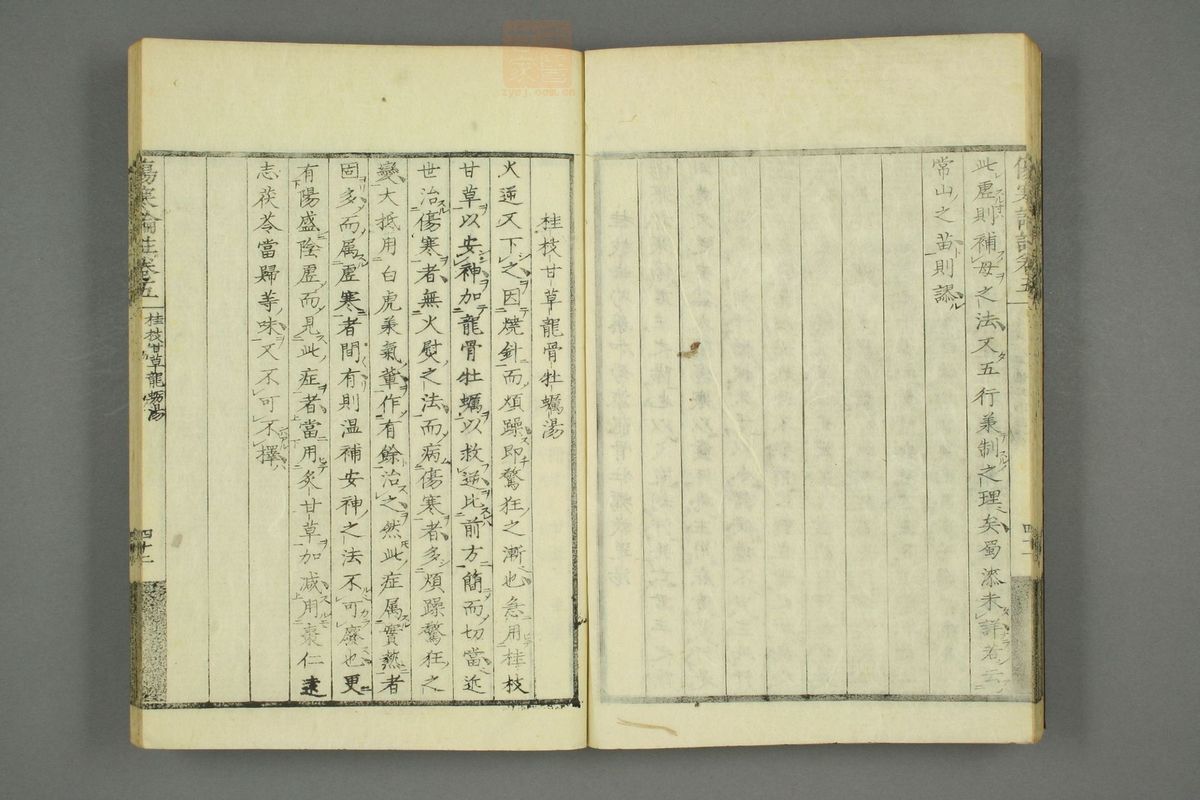 此虛則補母之法又五行兼制之理矣蜀漆未詳若云
常山之苗則謬
傷寒論註卷五
四十一
桂枝甘草龍骨牡蠣湯
火逆又下之因燒針而煩躁即驚狂之漸也急用桂枝
甘草以安神加龍骨牡蠣以救逆比前方簡而切當近
世治傷寒者無火熨之法而病傷寒者多煩躁驚狂之
變大抵用白虎承氣輩作有餘治之然此症属實熱者
固多而属虛寒者間有則温補安神之法不可廢也更
有陽盛陰虛而見此症者當用炙甘草加减用棗仁遠
志茯苓當歸等味又不可不擇
傷寒論註卷五
桂枝甘草龍蠣湯
四十二
zycj.com.cn